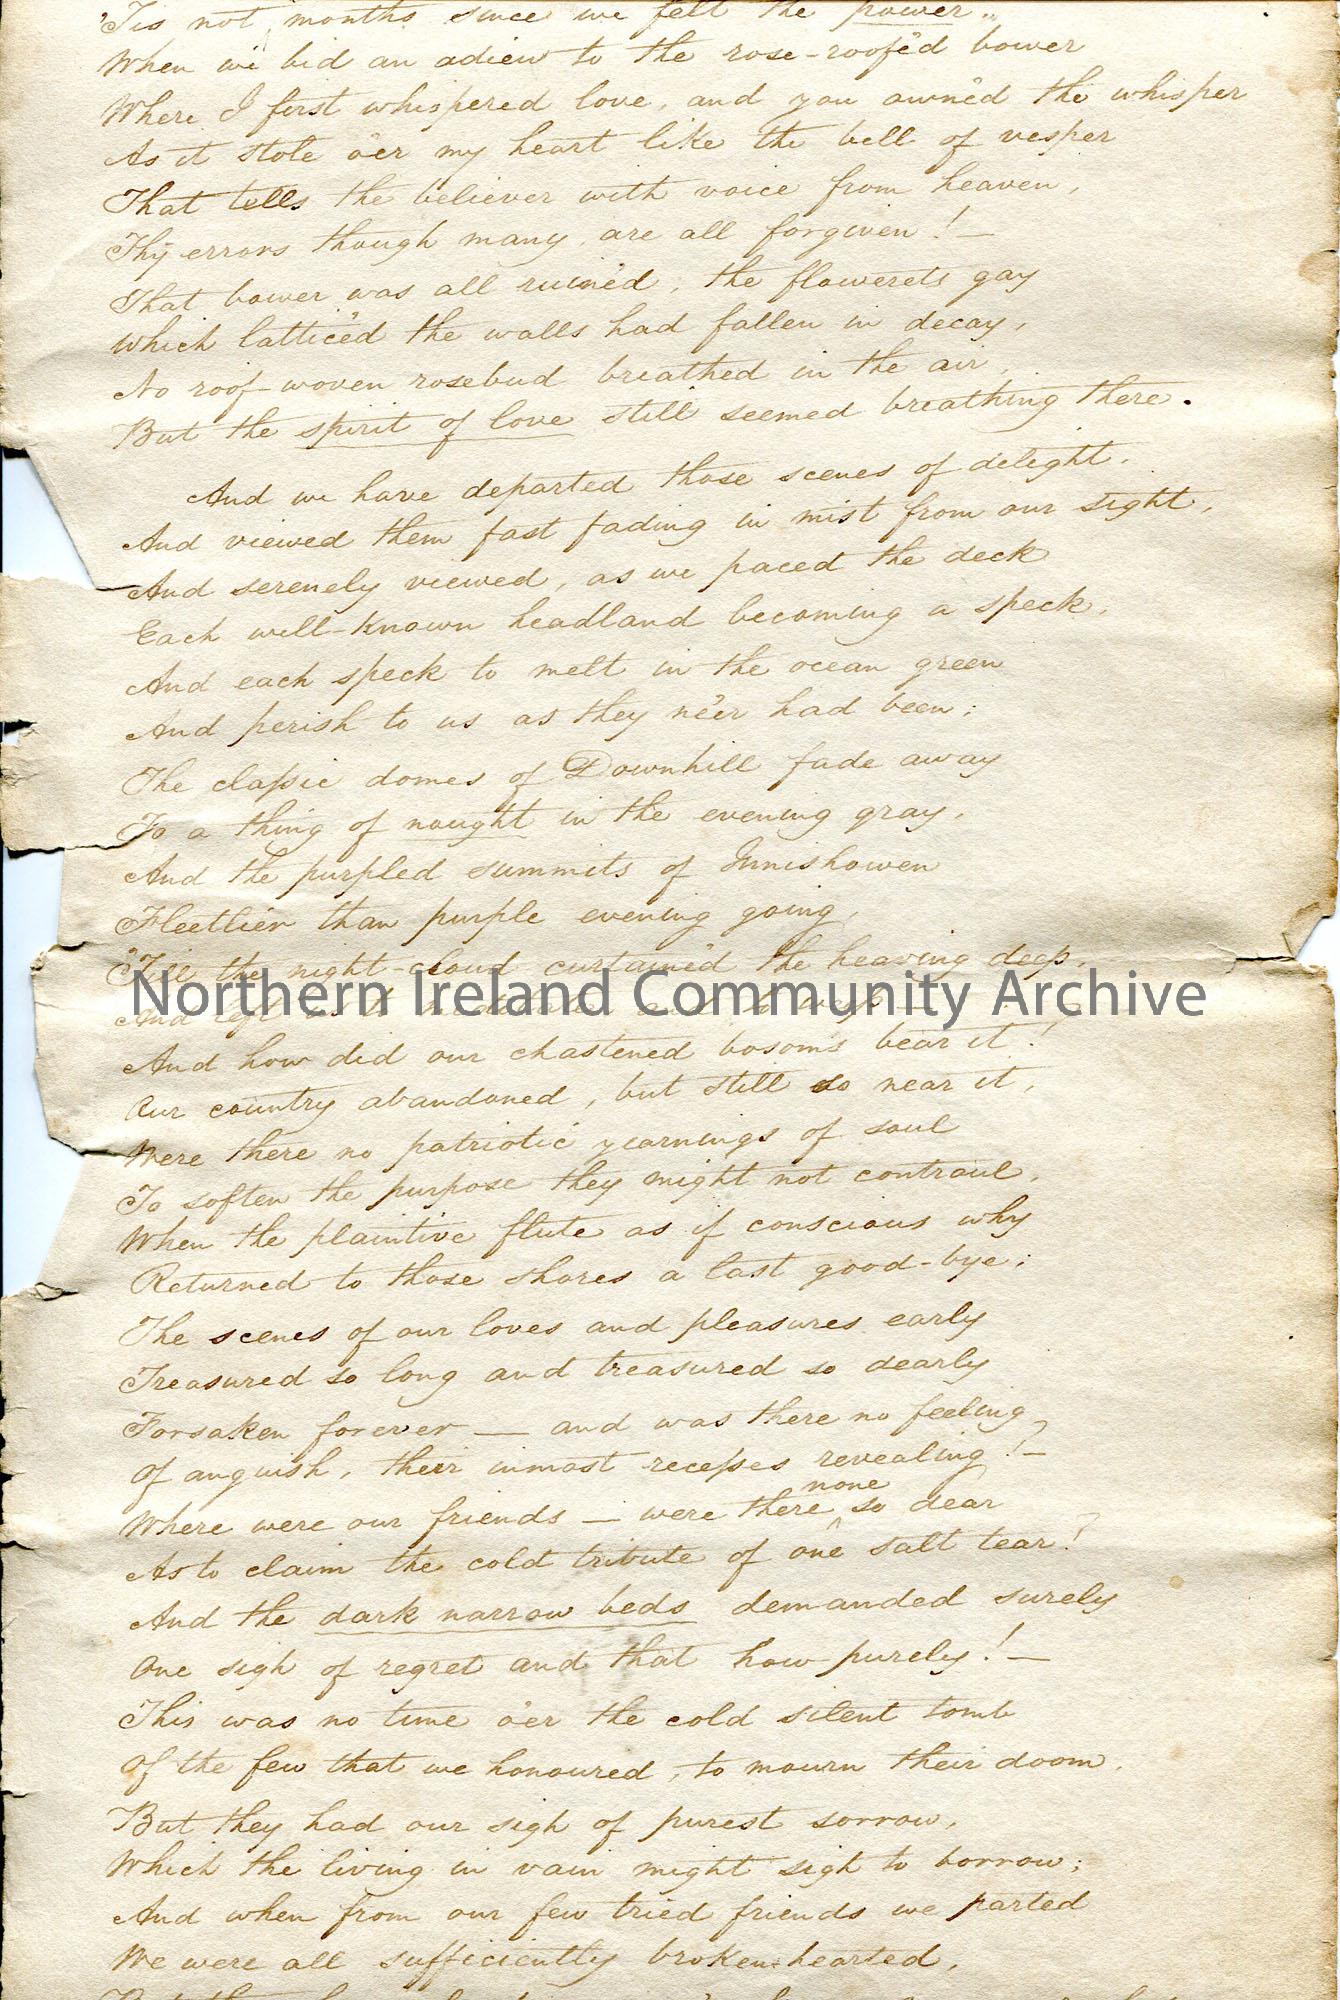 'Tis not months since we felt the power..
When we bid an adieu to the rose-roofe'd bower
Where I first whispered love, and you owne'd the whisper
As it stole o'er my heart like the bell of vesper
That tells the believer with voice from heaven,
Thy errors though many, are all forgiven! —
That bower was all ruine'd, the flowerets gay
Which lattice'd the walls had fallen in decay,
No roof-woven rosebud breathed in the air,
But the spirit of love still seemed breathing there.
And we have departed those scenes of delight,
And viewed them fast fading in mist from our sight,
And serenely viewed, as we paced the deck
Each well-known headland becoming a speck,
And each speck to melt in the ocean green
And perish to us as they ne'er had been;
The classic domes of Downhill fade away
To a thing of nought in the evening gray,
And the purpled summits of Innishowen
Fleetlier than purple evening going,
'Till the night-cloud curtaine'd the heaving deep,
And left us to
Northern Ireland Community Archive
And how did our chastened bosoms bear it!
Our country abandoned, but still so near it,
Were there no patriotic yearnings of soul
To soften the purpose they might not controul,
When the plaintive flute as if conscious why
Returned to those shores a last good-bye;
The scenes of our loves and pleasures early
Treasured so long and treasured so dearly
Forsaken forever — and was there no feeling
Of anguish, their inmost recesses revealing? —
Where were our friends — were there none so dear
As to claim the cold tribute of one salt tear?
And the dark narrow beds demanded surely
One sigh of regret and that how purely! —
This was no time o'er the cold silent tomb
Of the few that we honoured, to mourn their doom,
But they had our sigh of purest sorrow,
Which the living in vain might sigh to borrow;
And when from our few tried friends we parted
We were all sufficiently broken-hearted,